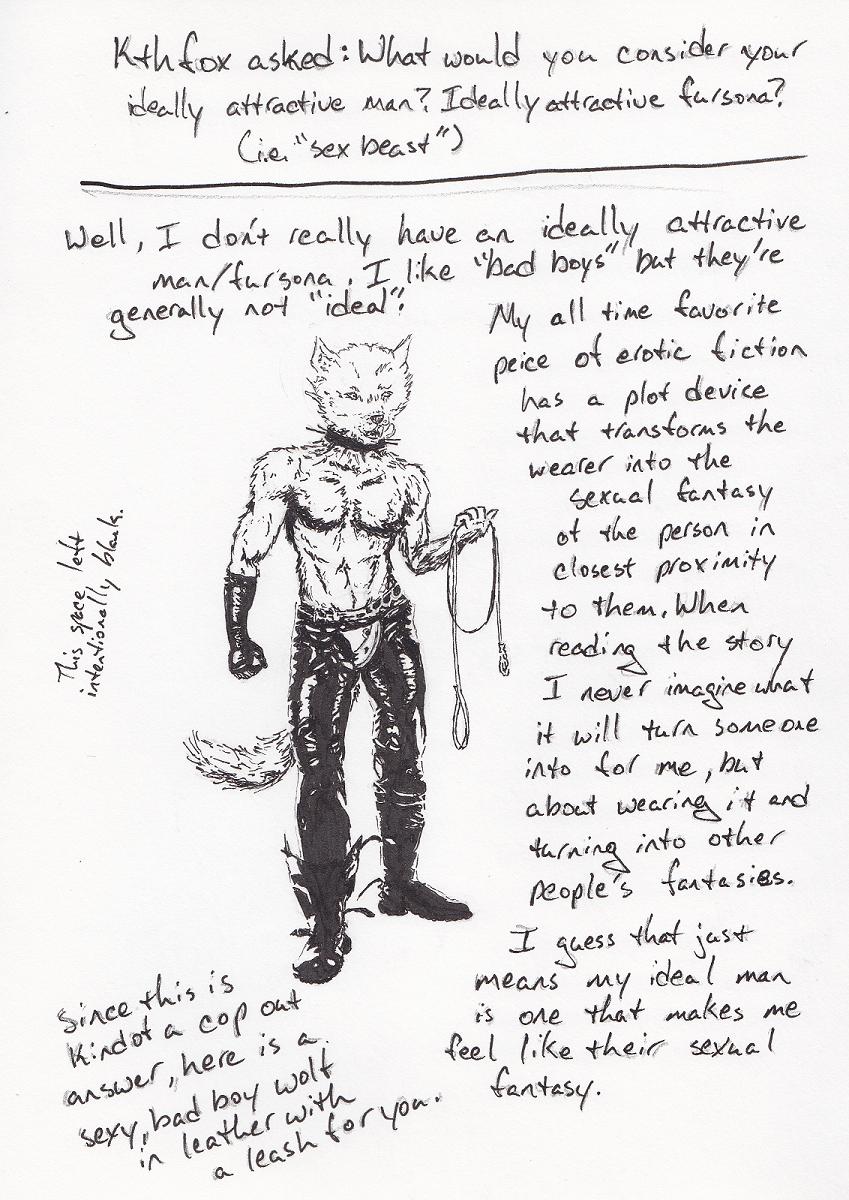 Kthfox asked: What would you consider your
ideally attractive man? Ideally attractive fursona?
(i.e. "sex beast")
Well, I don't really have an ideally attractive
man/fursona. I like "bad boys" but they're
generally not "ideal".
My all time favorite
peice of erotic fiction
has a plot device
that transforms the
wearer into the
sexual fantasy
of the person in
closest proximity
to them. When
reading the story
I never imagine what
it will turn someone
into for me, but
about wearing it and
turning into other
people's fantasies.
I guess that just
means my ideal man
is one that makes me
feel like their sexual
fantasy.
This space left
intentionally blank.
Since this is
kindof a cop out
answer, here is a
sexy, bad boy wolf
in leather with
a leash for you.